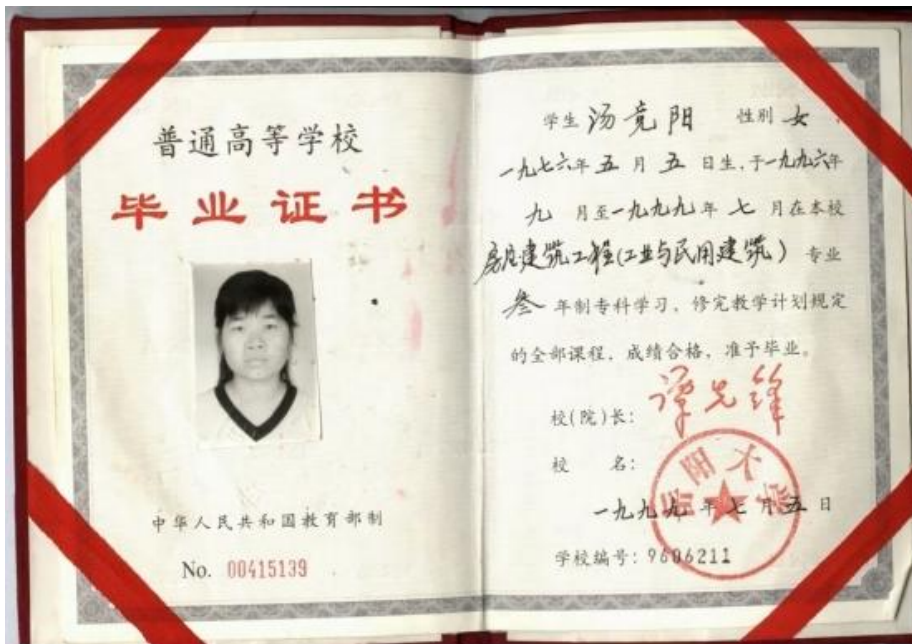 普通高等学校
毕业证书
中华人民共和国教育部制
No. 00415139
学生 汤竞阳 性别 女
一九七六年五月五日生,于一九九六年
九月至一九九九年七月在本校
房屋建筑工程(工业与民用建筑)专业
叁年制专科学习,修完教学计划规定
的全部课程,成绩合格,准予毕业。
校(院)长: 谭先锋
校 名:
岳阳大学
一九九九年七月五日
学校编号: 9606211